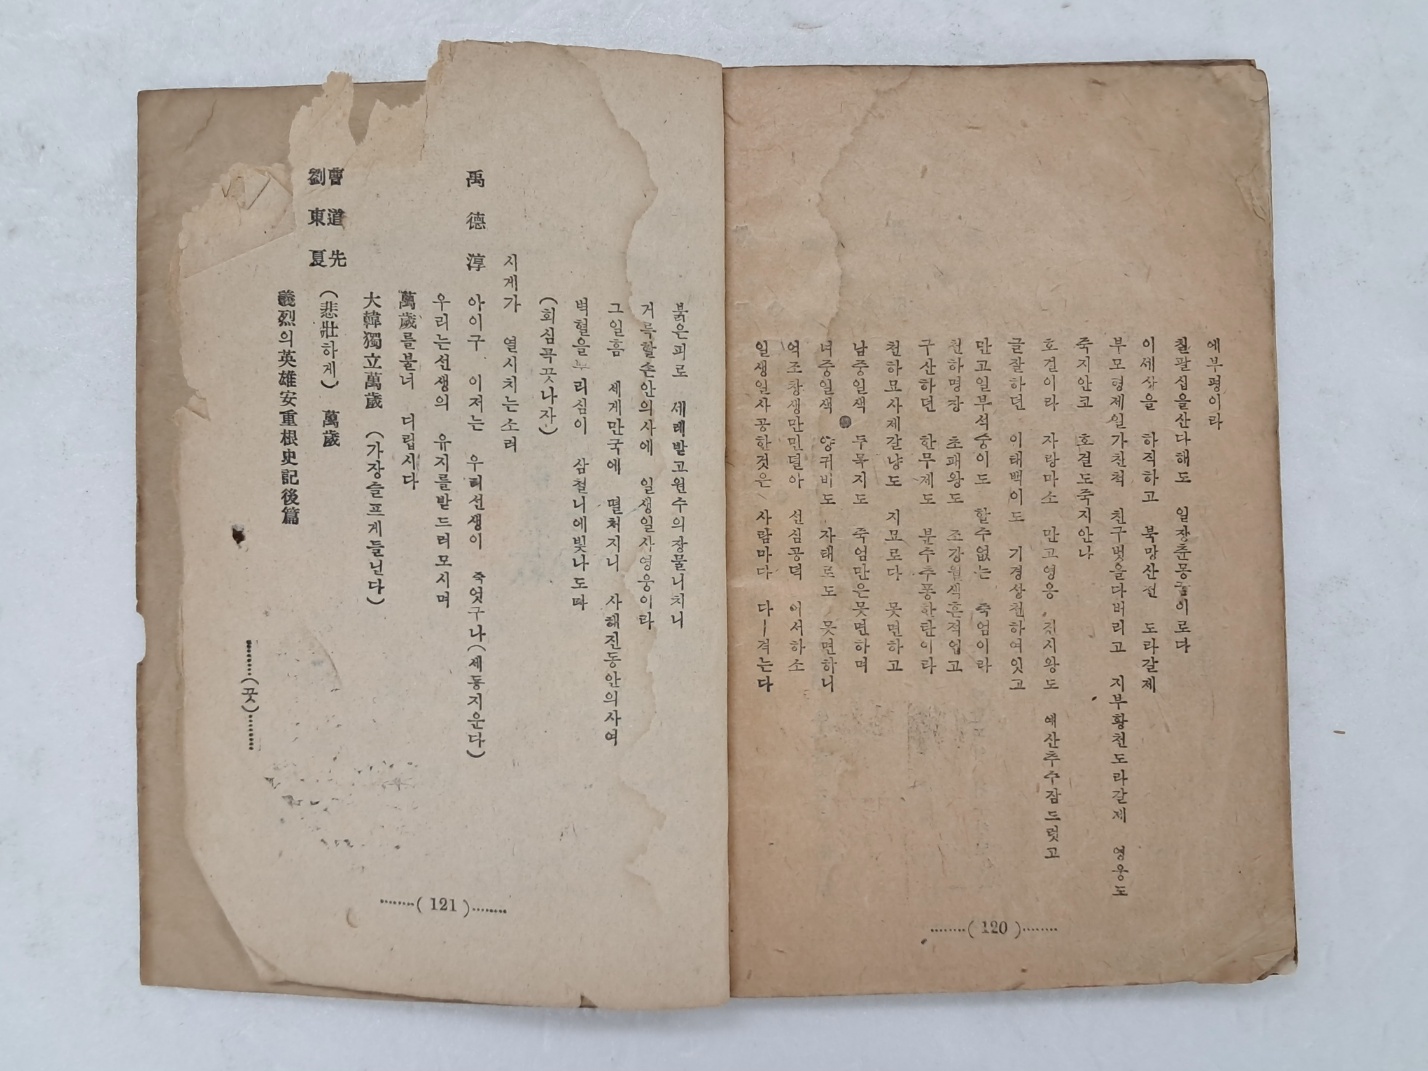 예부평이라
칠팔십을산다해도 일장춘몽이로다
이세상을 하직하고 북망산천 도라갈제
부모형제일가친척 친구벗을다버리고 지부황천도라갈제 영웅도
죽지안코 호걸도죽지안나
호걸이라 자랑마소 만고영웅 진시왕도 예산추수잠드럿고
글잘하던 이태백이도 기경상천하여잇고
만고일부석숭이도 할수없는 죽엄이라
천하명장 초패왕도 조강월색흔적업고
구산하던 한무제도 분수추풍한탄이라
천하모사제갈냥도 지모로다 못면하고
남중일색 두목지도 죽엄만은못면하며
녀중일색 양귀비도 자태로도 못면하니
억조창생만민덜아 선심공덕 어서하소
일생일사공한것은 사람마다 다ー격는다
········( 120 )········
붉은피로 세레받고원수의장물니치니
거룩할손안의사에 일생일사영웅이라
그일흠 세게만국에 떨처지니 사해진동안의사여
벽혈을뿌리심이 삼철니에빛나도다
(회심곡끗나자)
시게가 열시치는소러
禹德淳 아이구 이저는 우리선생이 죽엇구나(세동지운다)
우리는선생의 유지를받드러모시며
萬歲를불너 디립시다
大韓獨立萬歲 (가장슬프게들닌다)
曹道先
劉東夏 (悲壯하게) 萬歲
義烈의英雄安重根史記後篇
········(끗)········
········( 121 )········